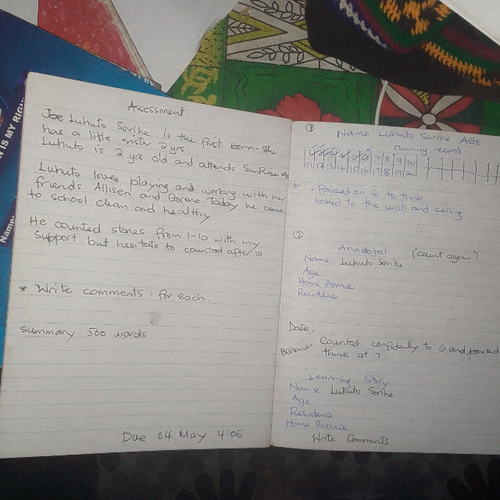 Assessment
Joe Luhuto Sorihe is the first born. She
has a little sister 2 yrs
Luhuto is 2 yrs old and attends SunRaise
Luhuto loves playing and working with her
friends Allisen and Gorene Today he came
to school clean and healthy
He counted stones from 1-10 with my
support but hesitate to counted after 10
* Write comments : for each.
Summary 500 words
Due 04 May 4:06
①
Name Luhuto Sorihe AGE
running record
1 2 3 4 5 6 7 8 9 10
11 12 13 14 15 16 17 18 19 20
Paused on 6 to think
looked to the wall and ceiling
②
Anadotal (count again)
Name Luhuto Sorihe
Age
Home
Residence
Date:
Counted confidently to 6 and paused
think at 7
Learning Story
Name Luhuto Sorihe
Age
Residence
Home
Write Comments
IS MY RIGH
Name